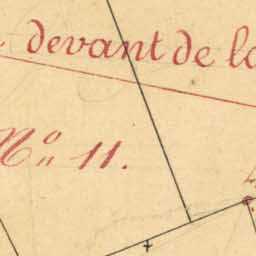 devant de la
No 11.